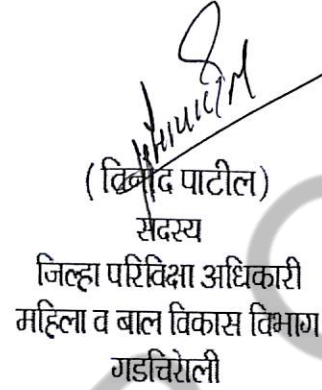 ( विनोद पाटील )
सदस्य
जिल्हा परिविक्षा अधिकारी
महिला व बाल विकास विभाग
गडचिरोली